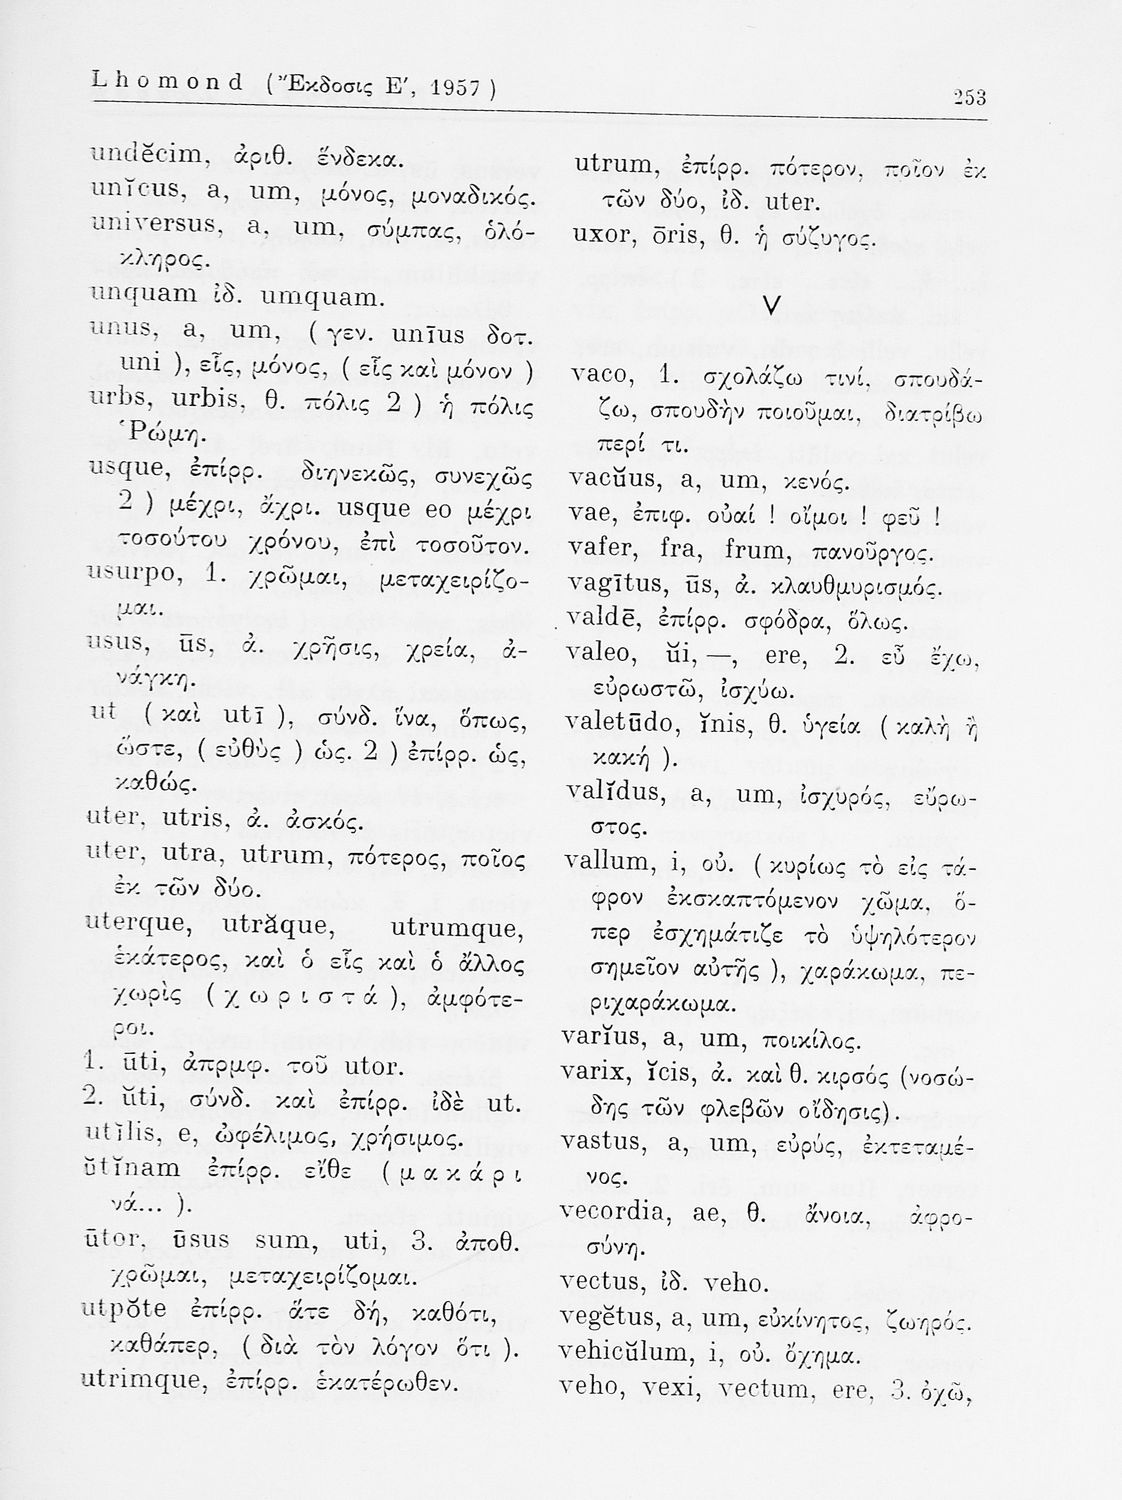 Lhomond (Ἔκδοσις Ε′, 1957)
253
undĕcim, ἀριθ. ἕνδεκα.
unĭcus, a, um, μόνος, μοναδικός.
universus, a, um, σύμπας, ὁλό-
κληρος.
unquam ἰδ. umquam.
unus, a, um, (γεν. unīus δοτ.
uni), εἷς, μόνος, (εἷς καὶ μόνον)
urbs, urbis, θ. πόλις 2) ἡ πόλις
Ῥώμη.
usque, ἐπίρρ. διηνεκῶς, συνεχῶς
2) μέχρι, ἄχρι. usque eo μέχρι
τοσούτου χρόνου, ἐπὶ τοσοῦτον.
usurpo, 1. χρῶμαι, μεταχειρίζο-
μαι.
usus, ūs, ἀ. χρῆσις, χρεία, ἀ-
νάγκη.
ut (καὶ utī), σύνδ. ἵνα, ὅπως,
ὥστε, (εὐθὺς) ὡς. 2) ἐπίρρ. ὡς,
καθώς.
uter, utris, ἀ. ἀσκός.
uter, utra, utrum, πότερος, ποῖος
ἐκ τῶν δύο.
uterque, utrăque, utrumque,
ἑκάτερος, καὶ ὁ εἷς καὶ ὁ ἄλλος
χωρὶς (χωριστά), ἀμφότε-
ροι.
1. ūti, ἀπρμφ. τοῦ utor.
2. ŭti, σύνδ. καὶ ἐπίρρ. ἰδὲ ut.
utĭlis, e, ὠφέλιμος, χρήσιμος.
ŭtĭnam ἐπίρρ. εἴθε (μακάρι
νά...).
ūtor, ūsus sum, uti, 3. ἀποθ.
χρῶμαι, μεταχειρίζομαι.
utpŏte ἐπίρρ. ἅτε δή, καθότι,
καθάπερ, (διὰ τὸν λόγον ὅτι).
utrimque, ἐπίρρ. ἑκατέρωθεν.
utrum, ἐπίρρ. πότερον, ποῖον ἐκ
τῶν δύο, ἰδ. uter.
uxor, ōris, θ. ἡ σύζυγος.
V
vaco, 1. σχολάζω τινί, σπουδά-
ζω, σπουδὴν ποιοῦμαι, διατρίβω
περί τι.
vacŭus, a, um, κενός.
vae, ἐπιφ. οὐαί! οἴμοι! φεῦ!
vafer, fra, frum, πανοῦργος.
vagītus, ūs, ἀ. κλαυθμυρισμός.
valdē, ἐπίρρ. σφόδρα, ὅλως.
valeo, ŭi, —, ere, 2. εὖ ἔχω,
εὐρωστῶ, ἰσχύω.
valetūdo, ĭnis, θ. ὑγεία (καλὴ ἢ
κακή).
valĭdus, a, um, ἰσχυρός, εὔρω-
στος.
vallum, i, οὐ. (κυρίως τὸ εἰς τά-
φρον ἐκσκαπτόμενον χῶμα, ὅ-
περ ἐσχημάτιζε τὸ ὑψηλότερον
σημεῖον αὐτῆς), χαράκωμα, πε-
ριχαράκωμα.
varĭus, a, um, ποικίλος.
varix, ĭcis, ἀ. καὶ θ. κιρσός (νοσώ-
δης τῶν φλεβῶν οἴδησις).
vastus, a, um, εὐρύς, ἐκτεταμέ-
νος.
vecordia, ae, θ. ἄνοια, ἀφρο-
σύνη.
vectus, ἰδ. veho.
vegĕtus, a, um, εὐκίνητος, ζωηρός.
vehicŭlum, i, οὐ. ὄχημα.
veho, vexi, vectum, ere, 3. ὀχῶ,